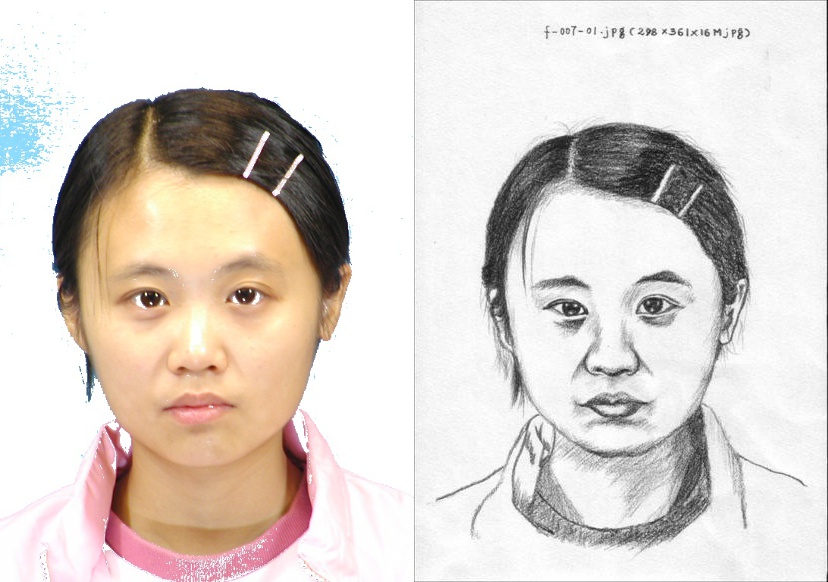 f-007-01.jpg(298×361×16Mjpg)